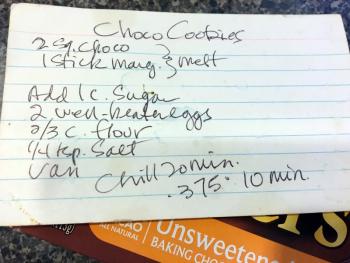 Choco Cookies
2 Sq. choco } melt
1 Stick marg. }
Add 1 c. Sugar
2 well-beaten eggs
2/3 c. flour
1/4 tsp. Salt
Van
Chill 20 min.
375° 10 min.
Unsweetened
BAKING CHO